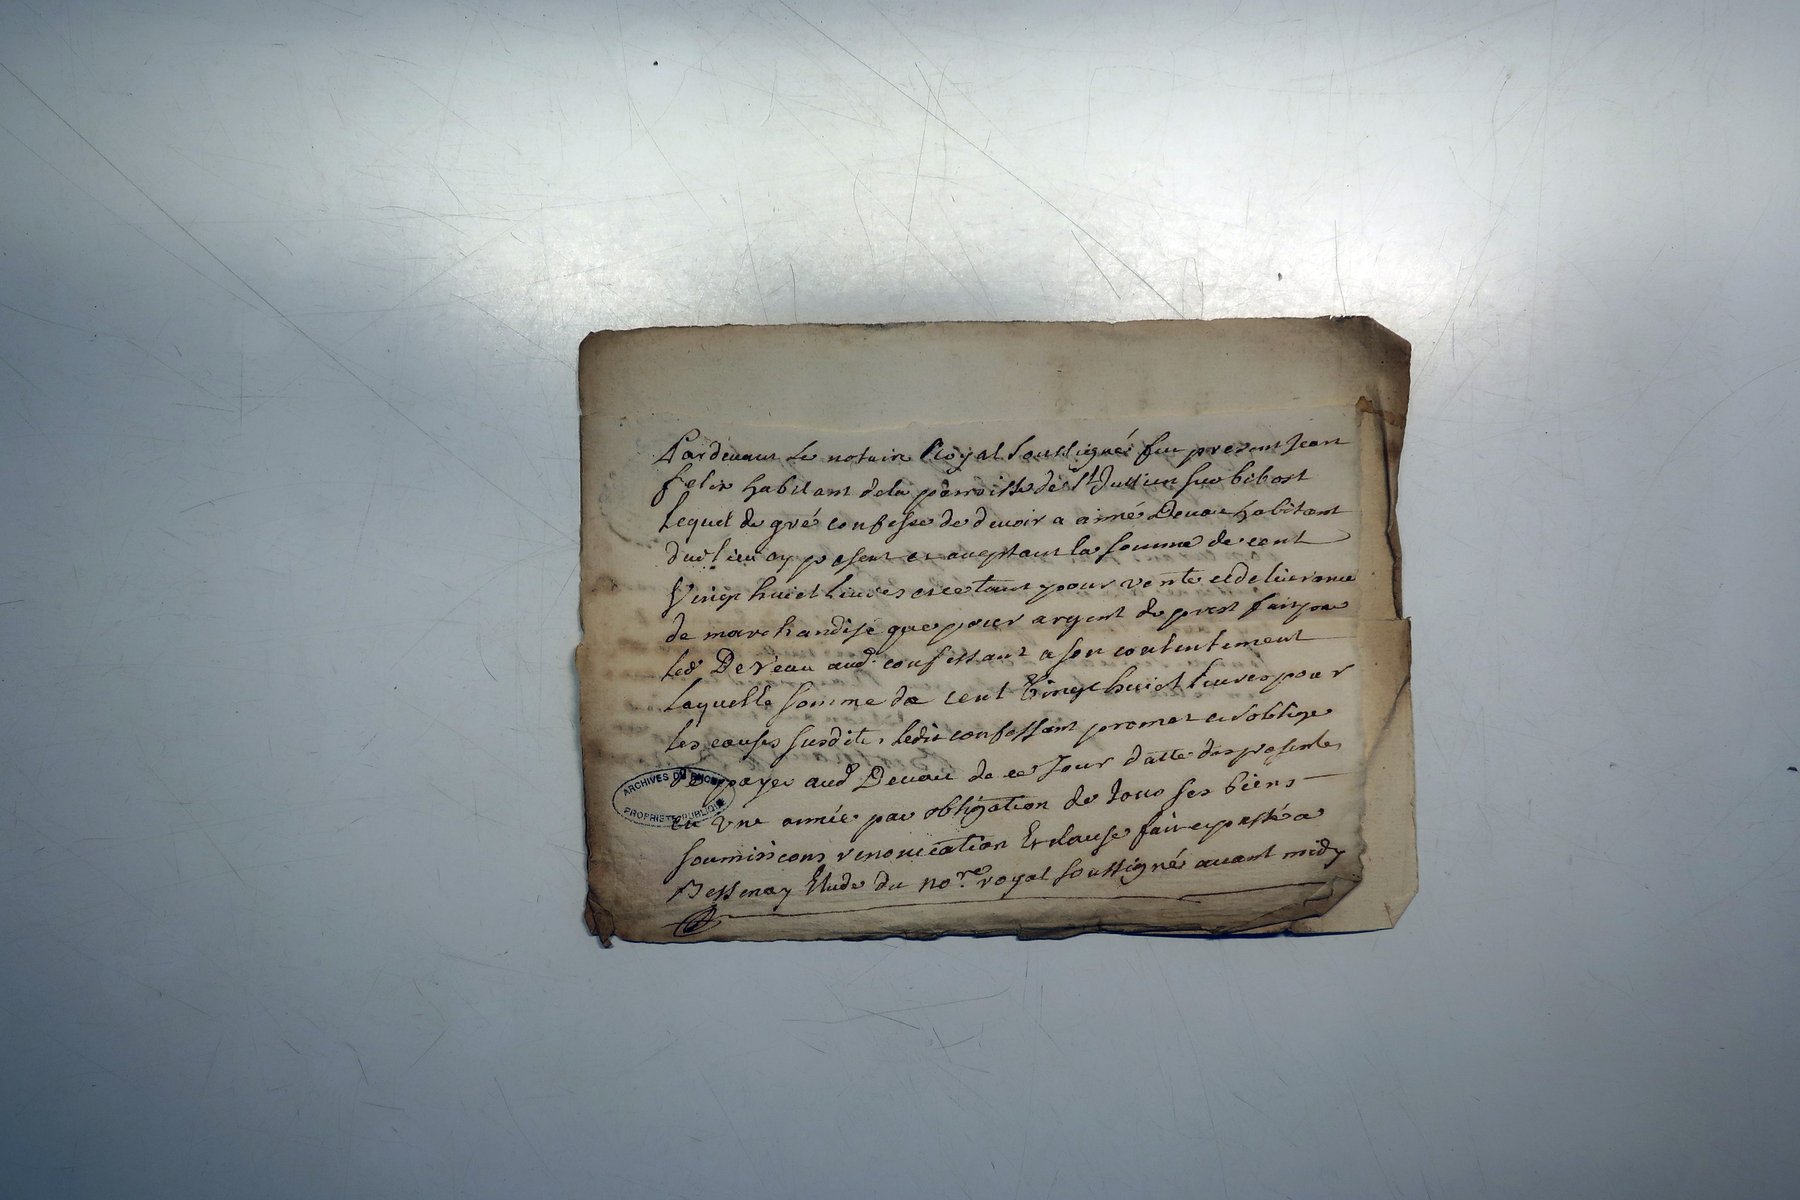 Pardeuant Le notaire Royal Soussigné fut present Jean
felix habitant dela parroisse de St Jullien sur bibost
Lequel de gré confesse de deuoir a aimé Deuau habitant
dud lieu cy present et aceptant la somme de cent
Vingt huict liures et ce tant pour vente et deliurance
de marchandise que pour argent de prest fait par
led Deveau aud. confessant a son contentement
Laquelle somme de cent Vingt huict liures pour
les causes susdites ledit confessant promet et s'oblige
de payer aud Deuau de ce Jour datte des presentes
en vne année par obligation de tous ses biens
soumissions renonciation Et clause fait et passé a
Bessenay Etude du no.re royal soussigné auant midy
ARCHIVES DU RHONE
PROPRIETE PUBLIQUE